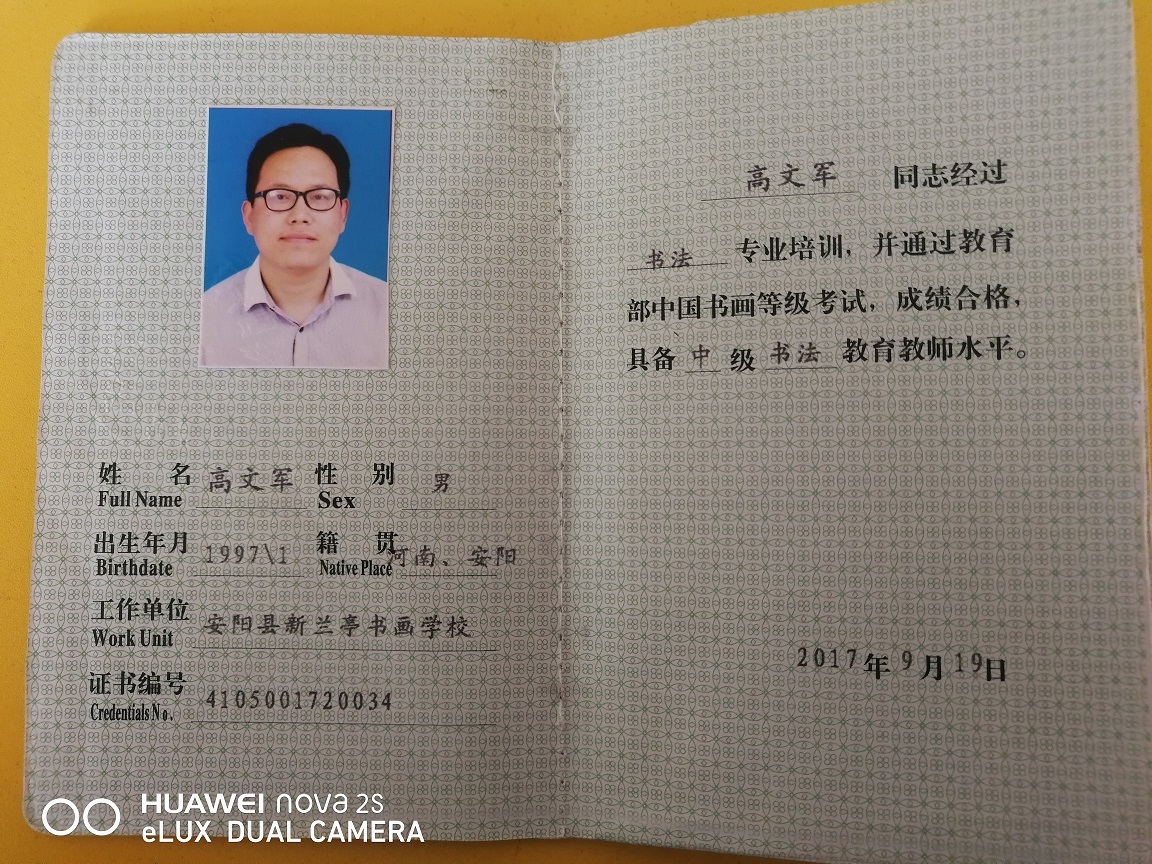 姓名 高文军 性别 男
Full Name Sex
出生年月 1997\1 籍贯 河南、安阳
Birthdate Native Place
工作单位 安阳县新兰亭书画学校
Work Unit
证书编号 4105001720034
Credentials No.
高文军 同志经过
书法 专业培训，并通过教育
部中国书画等级考试，成绩合格，
具备 中 级 书法 教育教师水平。
2017年9月19日
HUAWEI nova 2s
eLUX DUAL CAMERA